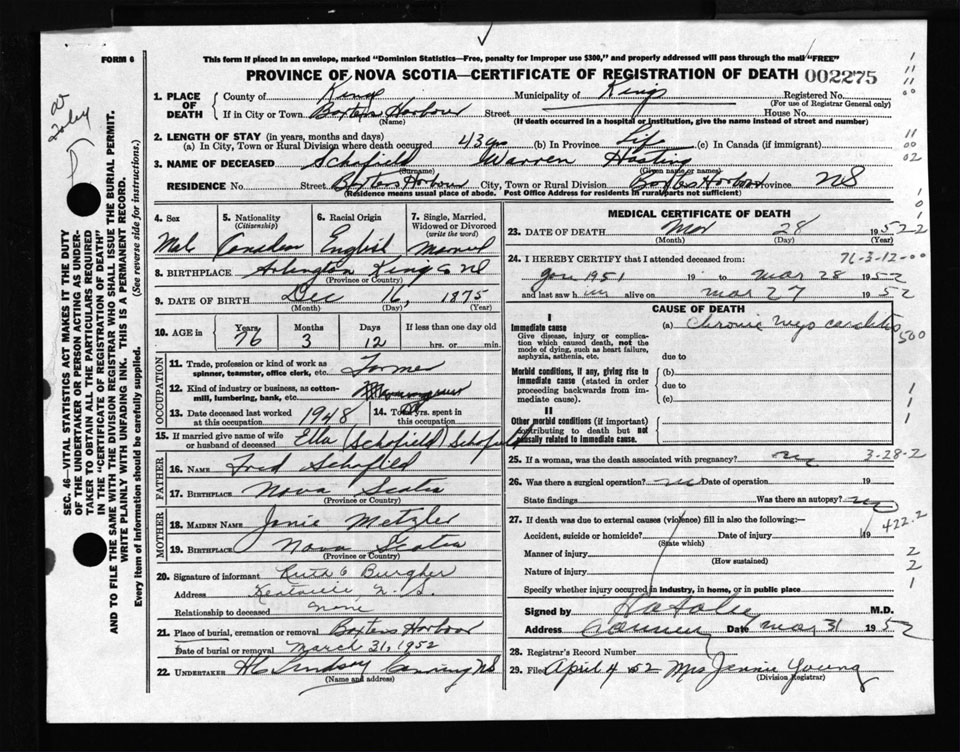 FORM 6
This form if placed in an envelope, marked "Dominion Statistics—Free, penalty for improper use $300," and properly addressed will pass through the mail "FREE"
PROVINCE OF NOVA SCOTIA—CERTIFICATE OF REGISTRATION OF DEATH 002275
1. PLACE OF DEATH County of Kings Municipality of Kings Registered No.
(For use of Registrar General only)
If in City or Town Baxters Harbour Street House No.
(Name) (If death occurred in a hospital or institution, give the name instead of street and number)
2. LENGTH OF STAY (in years, months and days)
(a) In City, Town or Rural Division where death occurred 43 yrs (b) In Province Life (c) In Canada (if immigrant)
3. NAME OF DECEASED Schofield Warren Hasting
(Surname) (Given name or names)
RESIDENCE No. Street Baxters Harbour City, Town or Rural Division Baxters Harbour Province NS
(Residence means usual place of abode. Post Office Address for residents in rural parts not sufficient)
4. Sex 5. Nationality 6. Racial Origin 7. Single, Married, Widowed or Divorced
(Citizenship) (write the word)
Male Canadian English Married
8. BIRTHPLACE Arlington Kings Co NS
(Province or Country)
9. DATE OF BIRTH Dec 16, 1875
(Month) (Day) (Year)
10. AGE in Years Months Days If less than one day old
76 3 12 hrs. or min.
OCCUPATION
11. Trade, profession or kind of work as spinner, teamster, office clerk, etc. Farmer
12. Kind of industry or business, as cotton-mill, lumbering, bank, etc.
13. Date deceased last worked at this occupation 1948 14. Total yrs. spent in this occupation
15. If married give name of wife or husband of deceased Ella (Schofield) Schofield
FATHER
16. NAME Fred Schofield
17. BIRTHPLACE Nova Scotia
(Province or Country)
MOTHER
18. MAIDEN NAME Janie Metzler
19. BIRTHPLACE Nova Scotia
(Province or Country)
20. Signature of informant Ruth G Burgher
Address Kentville N.S.
Relationship to deceased None
21. Place of burial, cremation or removal Baxters Harbour
Date of burial or removal March 31, 1952
22. UNDERTAKER HC Lindsay Canning NS
(Name and address)
MEDICAL CERTIFICATE OF DEATH
23. DATE OF DEATH Mar 28 1952
(Month) (Day) (Year)
24. I HEREBY CERTIFY that I attended deceased from: 76-3-12-00
Jan 1951 19 to Mar 28 1952
and last saw him alive on Mar 27 1952
CAUSE OF DEATH
I
Immediate cause (a) Chronic Myo carditis
Give disease, injury or complication which caused death, not the mode of dying, such as heart failure, asphyxia, asthenia, etc.
due to
Morbid conditions, if any, giving rise to immediate cause (stated in order proceeding backwards from immediate cause). (b)
due to
(c)
II
Other morbid conditions (if important) contributing to death but not causally related to immediate cause.
25. If a woman, was the death associated with pregnancy? 3-28-2
26. Was there a surgical operation? no Date of operation 19
State findings Was there an autopsy? no
27. If death was due to external causes (violence) fill in also the following:— 422.2
Accident, suicide or homicide? Date of injury 19
(State which)
Manner of injury
(How sustained)
Nature of injury
Specify whether injury occurred in industry, in home, or in public place
Signed by M.D.
Address Canning Date Mar 31 1952
28. Registrar's Record Number
29. Filed April 4 1952 Mrs Jennie Young
(Division Registrar)
SEC. 46—VITAL STATISTICS ACT MAKES IT THE DUTY
OF THE UNDERTAKER OR PERSON ACTING AS UNDER-
TAKER TO OBTAIN ALL THE PARTICULARS REQUIRED
IN THE "CERTIFICATE OF REGISTRATION OF DEATH"
AND TO FILE THE SAME WITH THE DIVISION REGISTRAR WHO SHALL ISSUE THE BURIAL PERMIT.
WRITE PLAINLY WITH UNFADING INK. THIS IS A PERMANENT RECORD.
Every item of information should be carefully supplied. (See reverse side for instructions.)